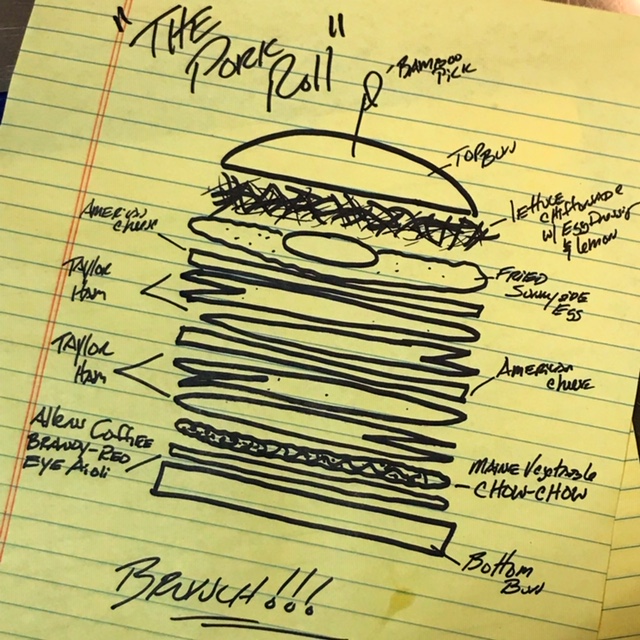 "THE
PORK
Roll"
BAMBOO
PICK
TOP BUN
lettuce
CHIFFONADE
w/ Egg Dressing
& lemon
AMERICAN
CHEESE
FRIED
Sunnyside
Egg
TAYLOR
HAM
TAYLOR
HAM
AMERICAN
CHEESE
Allens Coffee
BRANDY-RED
EYE Aioli
MAINE Vegetable
CHOW-CHOW
Bottom
Bun
BRUNCH!!!